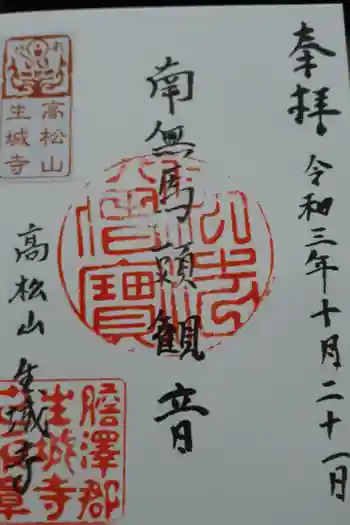 奉拝
令和三年十月二十一日
南無馬頭観音
高松山
生城寺
高松山 生城寺
膽澤郡
生城寺